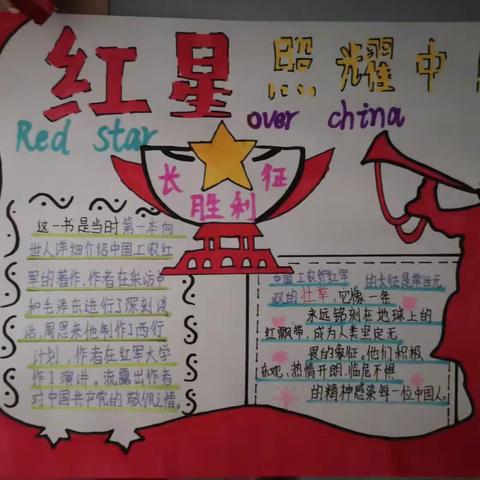 红星照耀中
Red star over china
长征
胜利
这一书是当时第一本向
世人详细介绍中国工农红
军的著作,作者在采访中
和毛泽东进行了深刻谈
话,周恩来他制作了西行
计划,作者在红军大学
作了演讲。流露出作者
对中国共产党的敬佩之情。
中国工农红军 的长征是举世无
双的壮举,它像一条
永远铭刻在地球上的
红飘带,成为人类坚定无
畏的象征,他们积极
乐观,热情开朗,临危不惧
的精神感染每一位中国人。